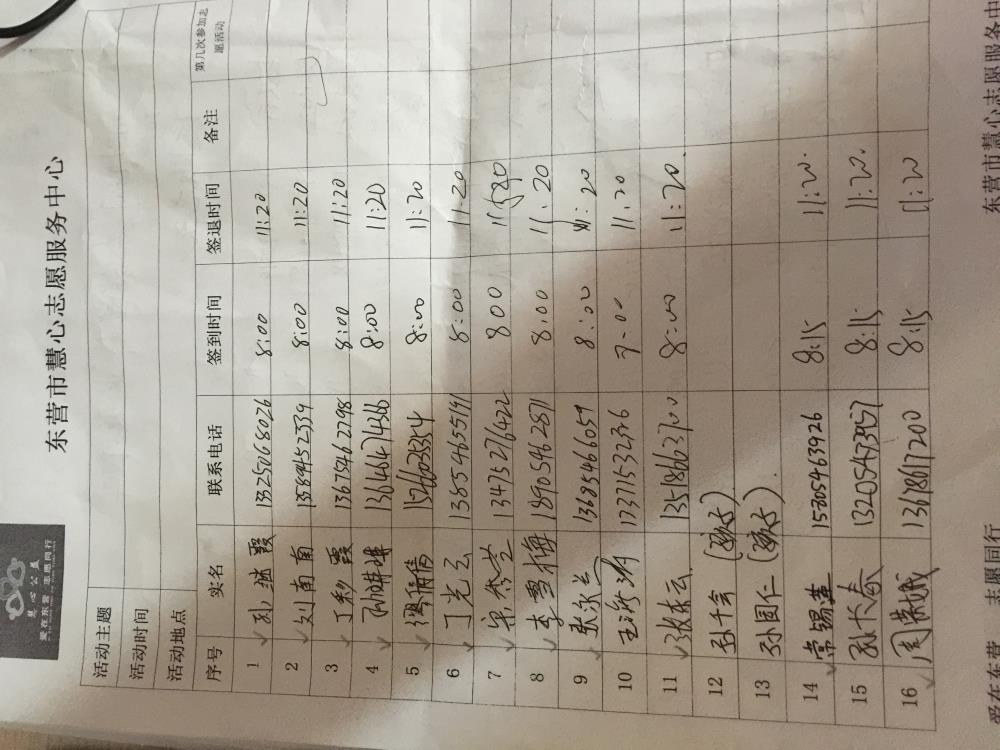 慧心公益
爱在东营 志愿同行
东营市慧心志愿服务中心
活动主题
活动时间
活动地点
序号 实名 联系电话 签到时间 签退时间 备注 第几次参加志愿活动
1 孙继霞 13250768026 8:00 11:20
2 刘南南 13589452339 8:00 11:20
3 丁彩霞 13675462298 8:00 11:20
4 8:00 11:20
5 倩倩 8:00 11:20
6 丁光云 13854655191 8:00 11:20
7 13475276422 8 00
8 李雪梅 18905462871 8:00 11:20
9 张永兰 13685466059 8:00 11:20
10 17371532326 7:00 11:20
11 张东云 13518663700 8:00 11:20.
12
13 孙国仁
14 常锡莲 15305463926 8:15 11:20.
15 孙长春 13205473957 8:15 11:20.
16 周荣娥 13618617200 8:15 11:20
爱在东营 志愿同行
东营市慧心志愿服务中